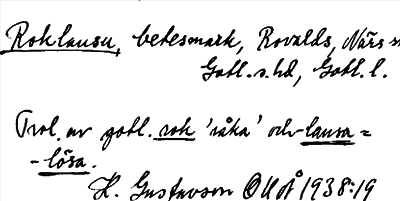 Roklausu, betesmark, Rovalds, Närs sn
Gotl. s. hd, Gotl. l.
Trol. av gotl. rok 'råka' och lausa =
-lösa.
H. Gustavson OUÅ 1938:19